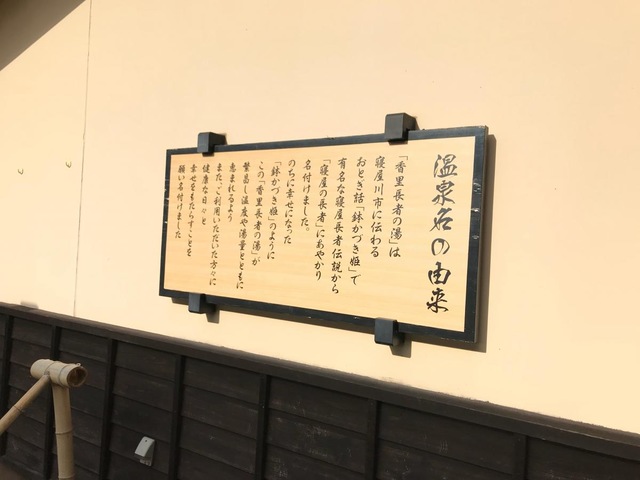 温泉名の由来
「香里長者の湯」は
寝屋川市に伝わる
おとぎ話「鉢かづき姫」で
有名な寝屋長者伝説から
「寝屋の長者」にあやかり
名付けました。
のちに幸せになった
「鉢かづき姫」のように
この「香里長者の湯」が
繁昌し温度や湯量とともに
恵まれるよう
また、ご利用いただいた方々に
健康な日々と
幸せをもたらすことを
願い名付けました